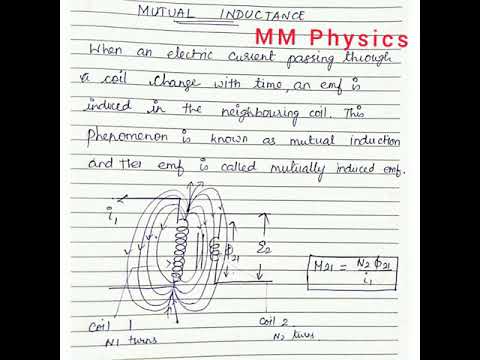 MUTUAL INDUCTANCE
MM Physics
When an electric current passing through
a coil change with time, an emf is
induced in the neighbouring coil. This
phenomenon is known as mutual induction
and the emf is called mutually induced emf.
i₁
ϕ₂₁
ε₂
M₂₁ = N₂ ϕ₂₁ / i₁
Coil 1
N1 turns
Coil 2
N₂ turns